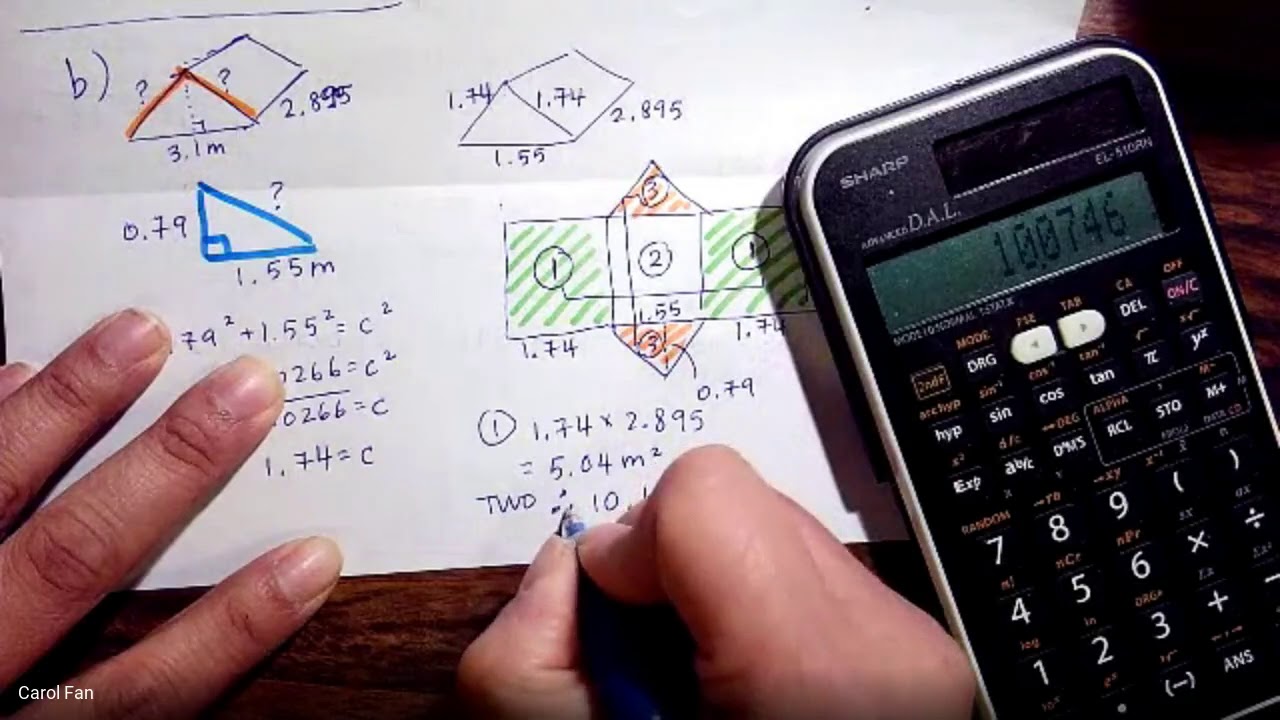 b)
? ?
2.895
3.1m
1.74 1.74
2.895
1.55
?
0.79
1.55m
79² + 1.55² = c²
0266 = c²
0266 = c
1.74 = c
3
1 2 1
1.55
1.74 3 1.74
0.79
① 1.74 × 2.895
= 5.04 m²
TWO ∴ 10.1
Carol Fan
SHARP
EL-510RN
ADVANCED D.A.L.
100746
MODE
ORG
DEL
ON/C
2ndF
hyp sin cos tan π yˣ
Exp a b/c D°M'S RCL STO M+
7 8 9 ( )
4 5 6 × ÷
1 2 3 +
(−) ANS